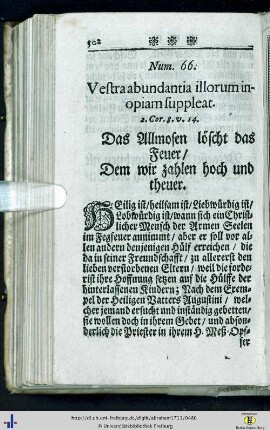 502
Num. 66.
Vestra abundantia illorum in-
opiam suppleat.
2. Cor. 8. v. 14.
Das Allmosen löscht das
Feuer /
Dem wir zahlen hoch und
theuer.
HEilig ist / heilsam ist / Liebwürdig ist /
Lobwürdig ist / wann sich ein Christ-
licher Mensch der Armen Seelen
im Fegfeuer annimmt / aber er soll vor al-
len andern denjenigen Hülf erreichen / die
da in seiner Freundschafft / zu allererst den
lieben verstorbenen Eltern / weil die forde-
rist ihre Hoffnung setzen auf die Hülffe der
hinterlassenen Kindern; Nach dem Exem-
pel der Heiligen Vatters Augustini / wel-
cher jemand ersucht und inständig gebetten /
sie wollen doch in ihrem Gebet / und abson-
derlich die Priester in ihrem H. Meß-Opf-
fer
http://dl.ub.uni-freiburg.de/diglit/abraham1710/0480
© Universitätsbibliothek Freiburg